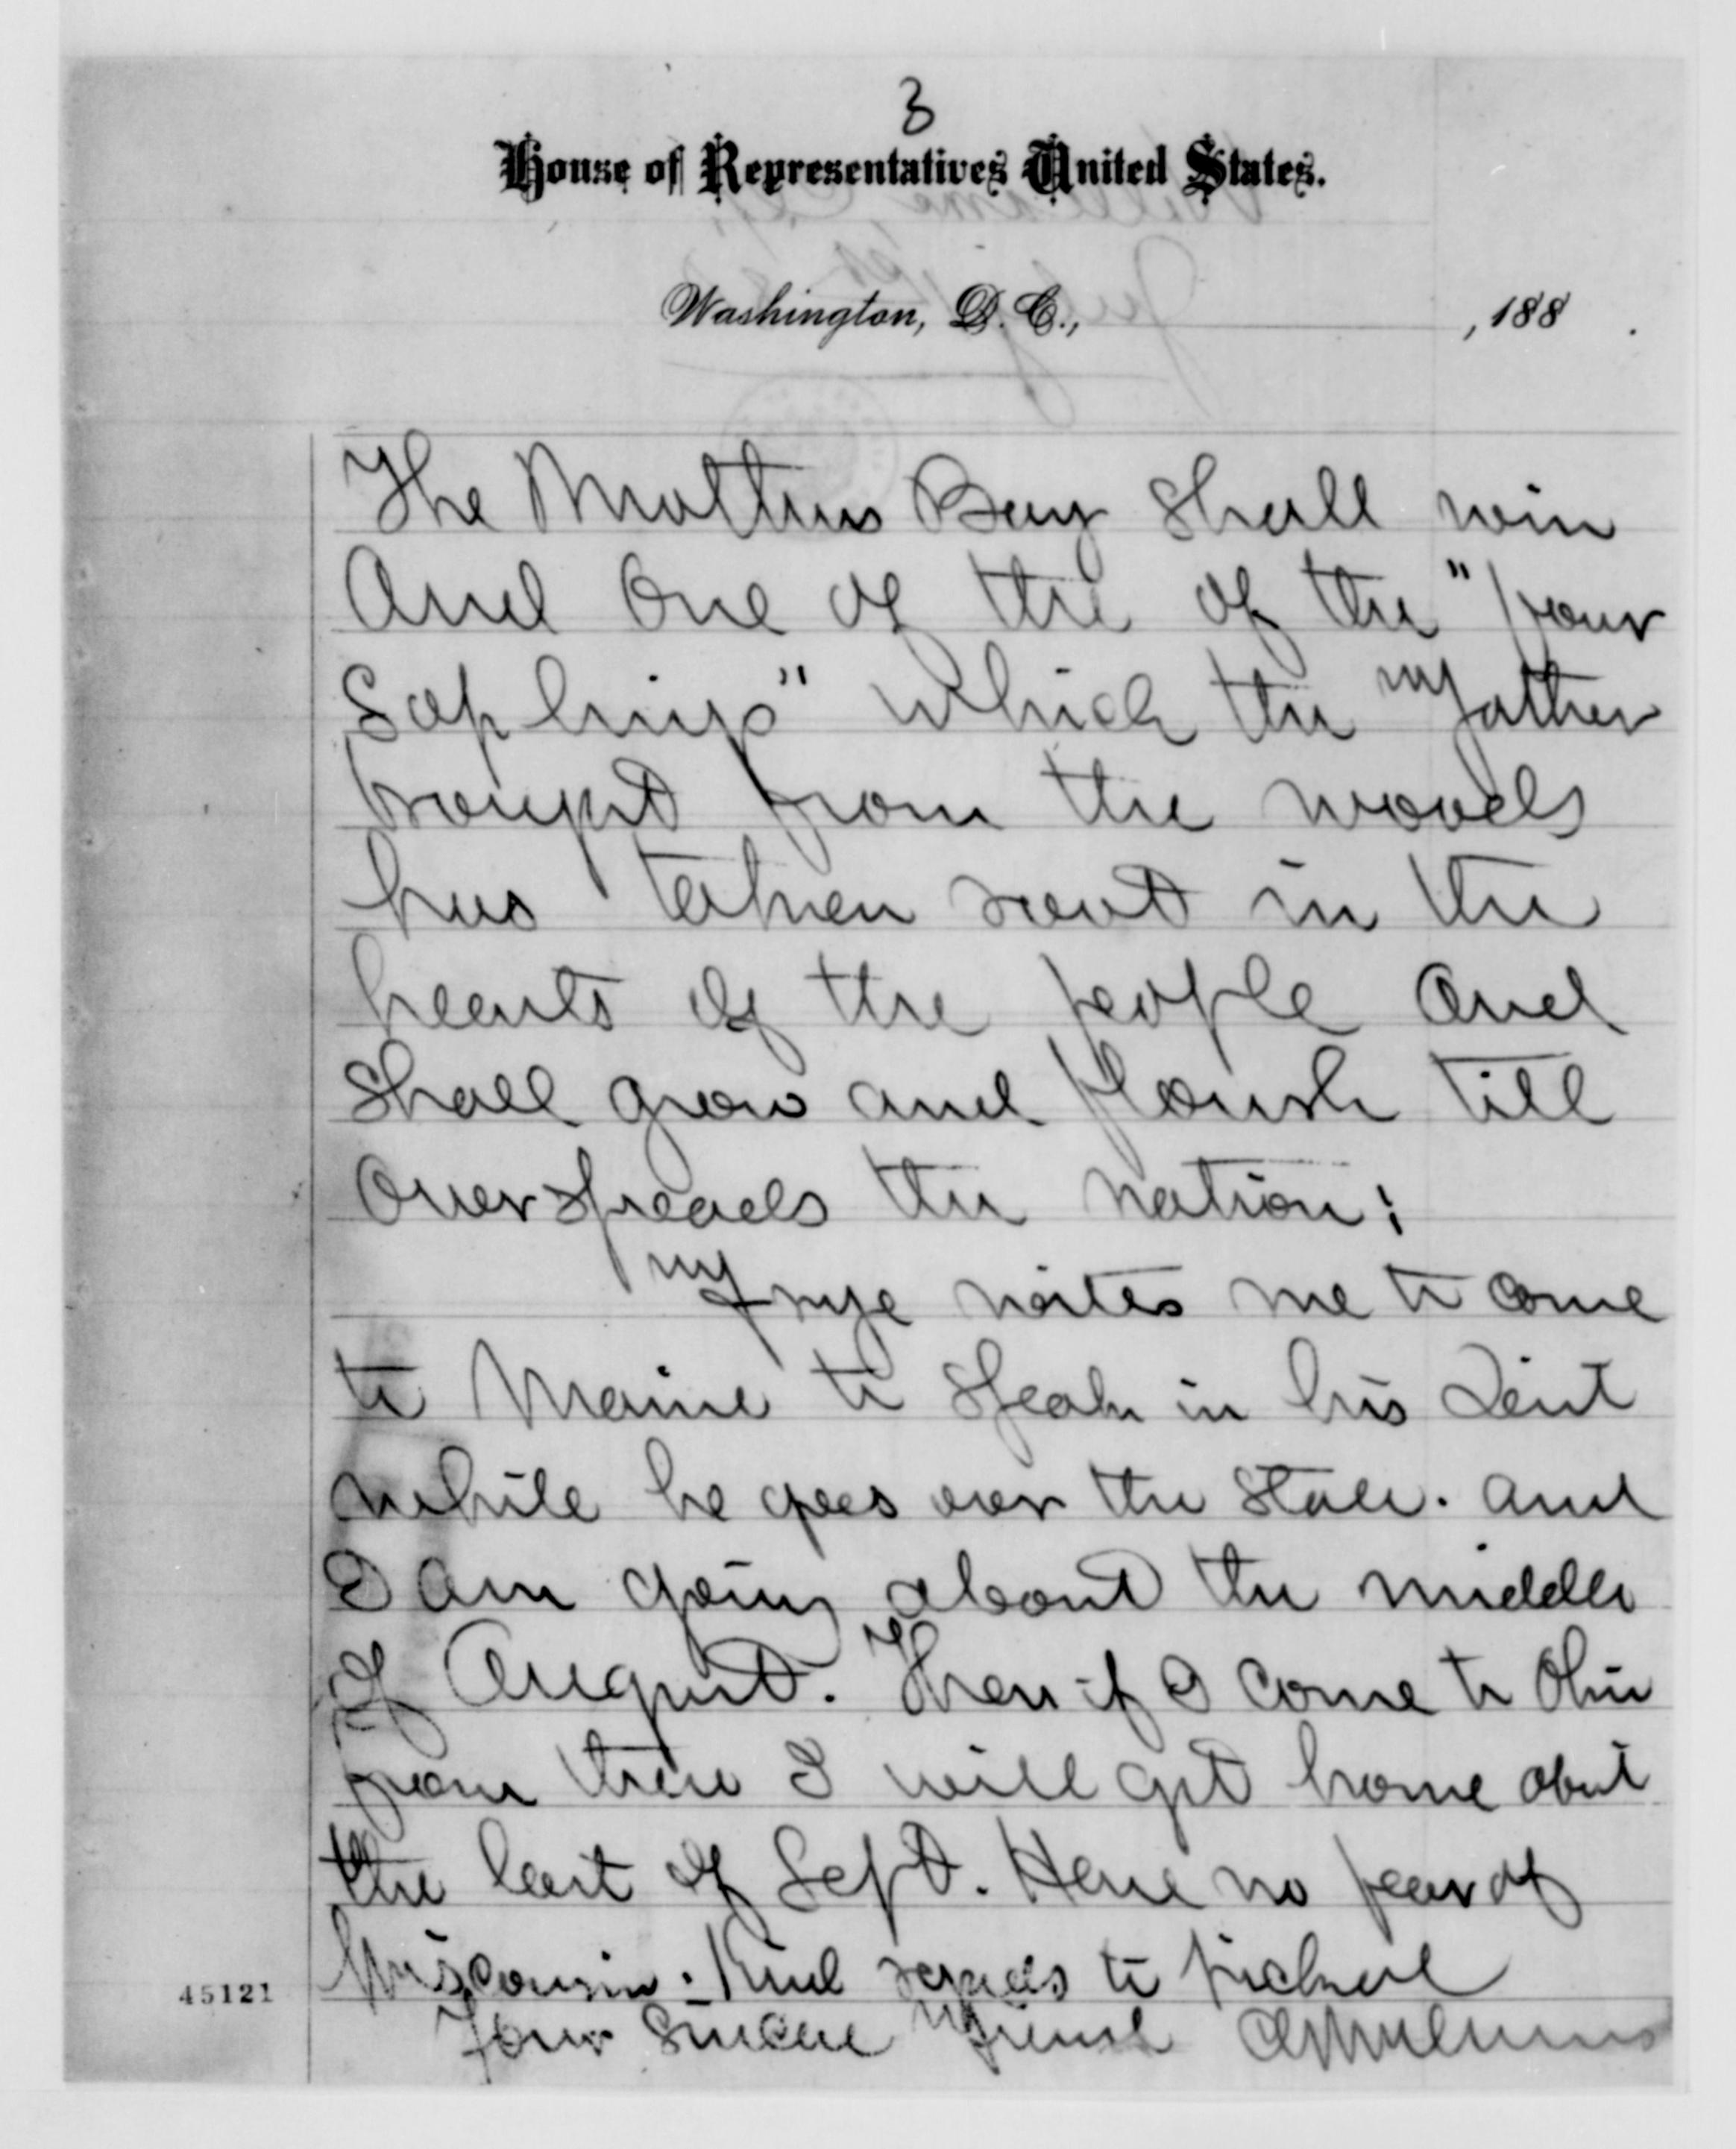 3
House of Representatives United States.
Washington, D. C., , 188 .
The Mothers Boy shall win
And One of the of the "four
Saplings" which the Father
brought from the woods
has taken root in the
hearts of the people And
shall grow and flourish till
Overspreads the nation;
Frye writes me to come
to Maine to speak in his Seat
while he goes over the State. and
I am going about the middle
of August. Then if I come to Ohio
from there I will get home about
the last of Sept. Have no fear of
Wisconsin. Kind regards to
Your Sincere Friend
45121